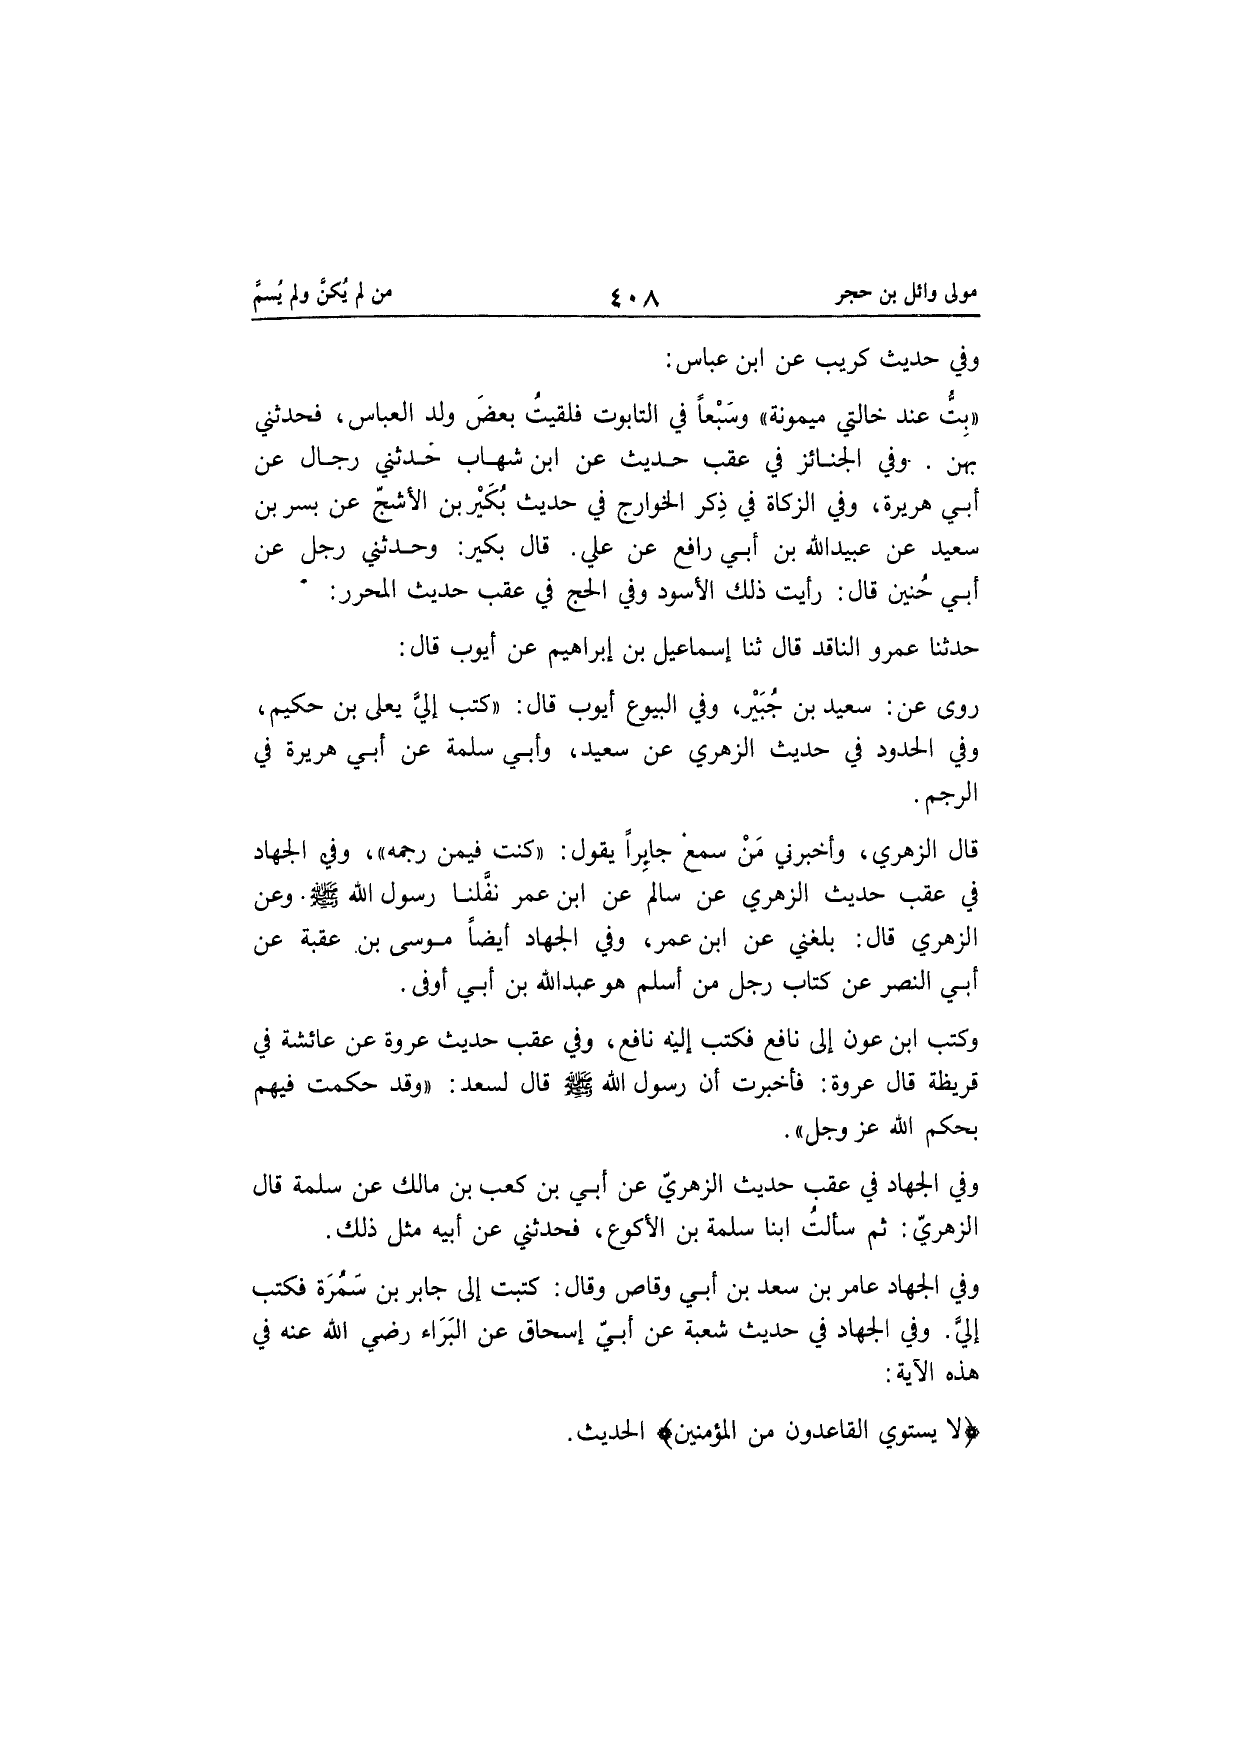 مولى وائل بن حجر ٤٠٨ من لم يُكنَّ ولم يُسمَّ
وفي حديث كريب عن ابن عباس:
«بِتُّ عند خالتي ميمونة» وسَبْعاً في التابوت فلقيتُ بعضَ ولد العباس، فحدثني
بهن . وفي الجنائز في عقب حديث عن ابن شهاب حَدثني رجال عن
أبي هريرة، وفي الزكاة في ذِكر الخوارج في حديث بُكَيْر بن الأشجّ عن بسر بن
سعيد عن عبيدالله بن أبي رافع عن علي. قال بكير: وحدثني رجل عن
أبي حُنين قال: رأيت ذلك الأسود وفي الحج في عقب حديث المحرر:
حدثنا عمرو الناقد قال ثنا إسماعيل بن إبراهيم عن أيوب قال:
روى عن: سعيد بن جُبَيْر، وفي البيوع أيوب قال: «كتب إليَّ يعلى بن حكيم،
وفي الحدود في حديث الزهري عن سعيد، وأبي سلمة عن أبي هريرة في
الرجم.
قال الزهري، وأخبرني مَنْ سمعْ جابِراً يقول: «كنت فيمن رجمه»، وفي الجهاد
في عقب حديث الزهري عن سالم عن ابن عمر نفَّلنا رسول الله ﷺ. وعن
الزهري قال: بلغني عن ابن عمر، وفي الجهاد أيضاً موسى بن عقبة عن
أبي النصر عن كتاب رجل من أسلم هو عبدالله بن أبي أوفى.
وكتب ابن عون إلى نافع فكتب إليه نافع، وفي عقب حديث عروة عن عائشة في
قريظة قال عروة: فأخبرت أن رسول الله ﷺ قال لسعد: «وقد حكمت فيهم
بحكم الله عز وجل».
وفي الجهاد في عقب حديث الزهريّ عن أبي بن كعب بن مالك عن سلمة قال
الزهريّ: ثم سألتُ ابنا سلمة بن الأكوع، فحدثني عن أبيه مثل ذلك.
وفي الجهاد عامر بن سعد بن أبي وقاص وقال: كتبت إلى جابر بن سَمُرَة فكتب
إليَّ. وفي الجهاد في حديث شعبة عن أبيّ إسحاق عن البَرَاء رضي الله عنه في
هذه الآية:
﴿لا يستوي القاعدون من المؤمنين﴾ الحديث.